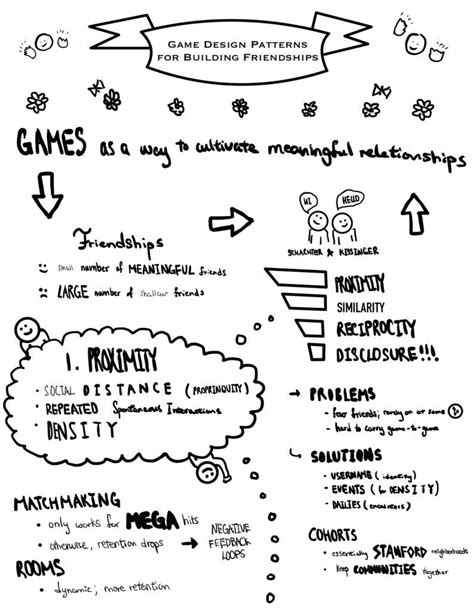 GAME DESIGN PATTERNS
FOR BUILDING FRIENDSHIPS
GAMES as a way to cultivate meaningful relationships
Friendships
small number of MEANINGFUL friends
LARGE number of shallow friends
HI
HELLO
SCHACHTER & KISSINGER
PROXIMITY
SIMILARITY
RECIPROCITY
DISCLOSURE!!!
1. PROXIMITY
• SOCIAL DISTANCE (PROPINQUITY)
• REPEATED Spontaneous Interactions
• DENSITY
MATCHMAKING
• only works for MEGA hits
• otherwise, retention drops → NEGATIVE
FEEDBACK
LOOPS
ROOMS
• dynamic; more retention
→ PROBLEMS
- few friends; on at same
- hard to carry game-to-game
SOLUTIONS
• USERNAME (identity)
• EVENTS (for DENSITY)
• DAILIES (encounters)
COHORTS
• essentially STANFORD neighborhoods
• keep COMMUNITIES together